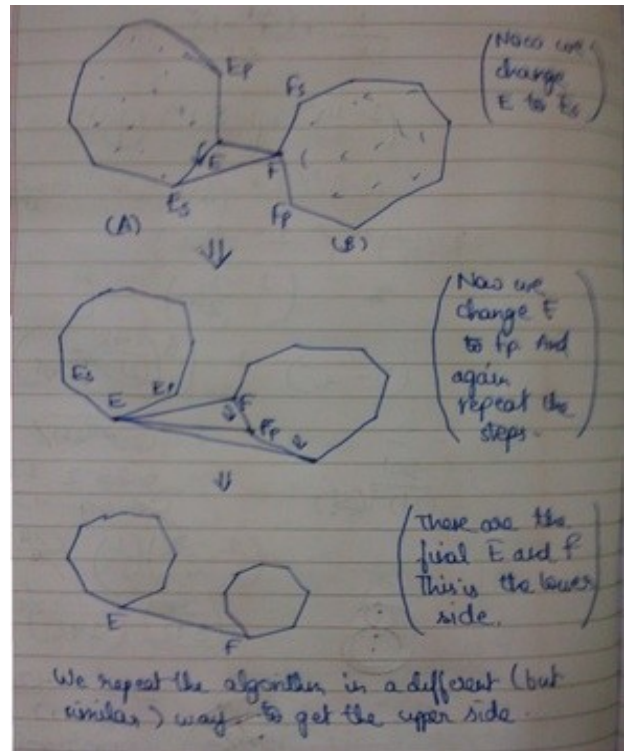 (Now we
change
E to Es)
Ep
Fs
E
F
Es
Fp
(A)
(B)
(Now we
change F
to Fp. And
again
repeat the
steps.)
Es
Ep
E
F
Fp
(These are the
final E and F
This is the lower
side.)
E
F
We repeat the algorithm in a different (but
similar) way to get the upper side.